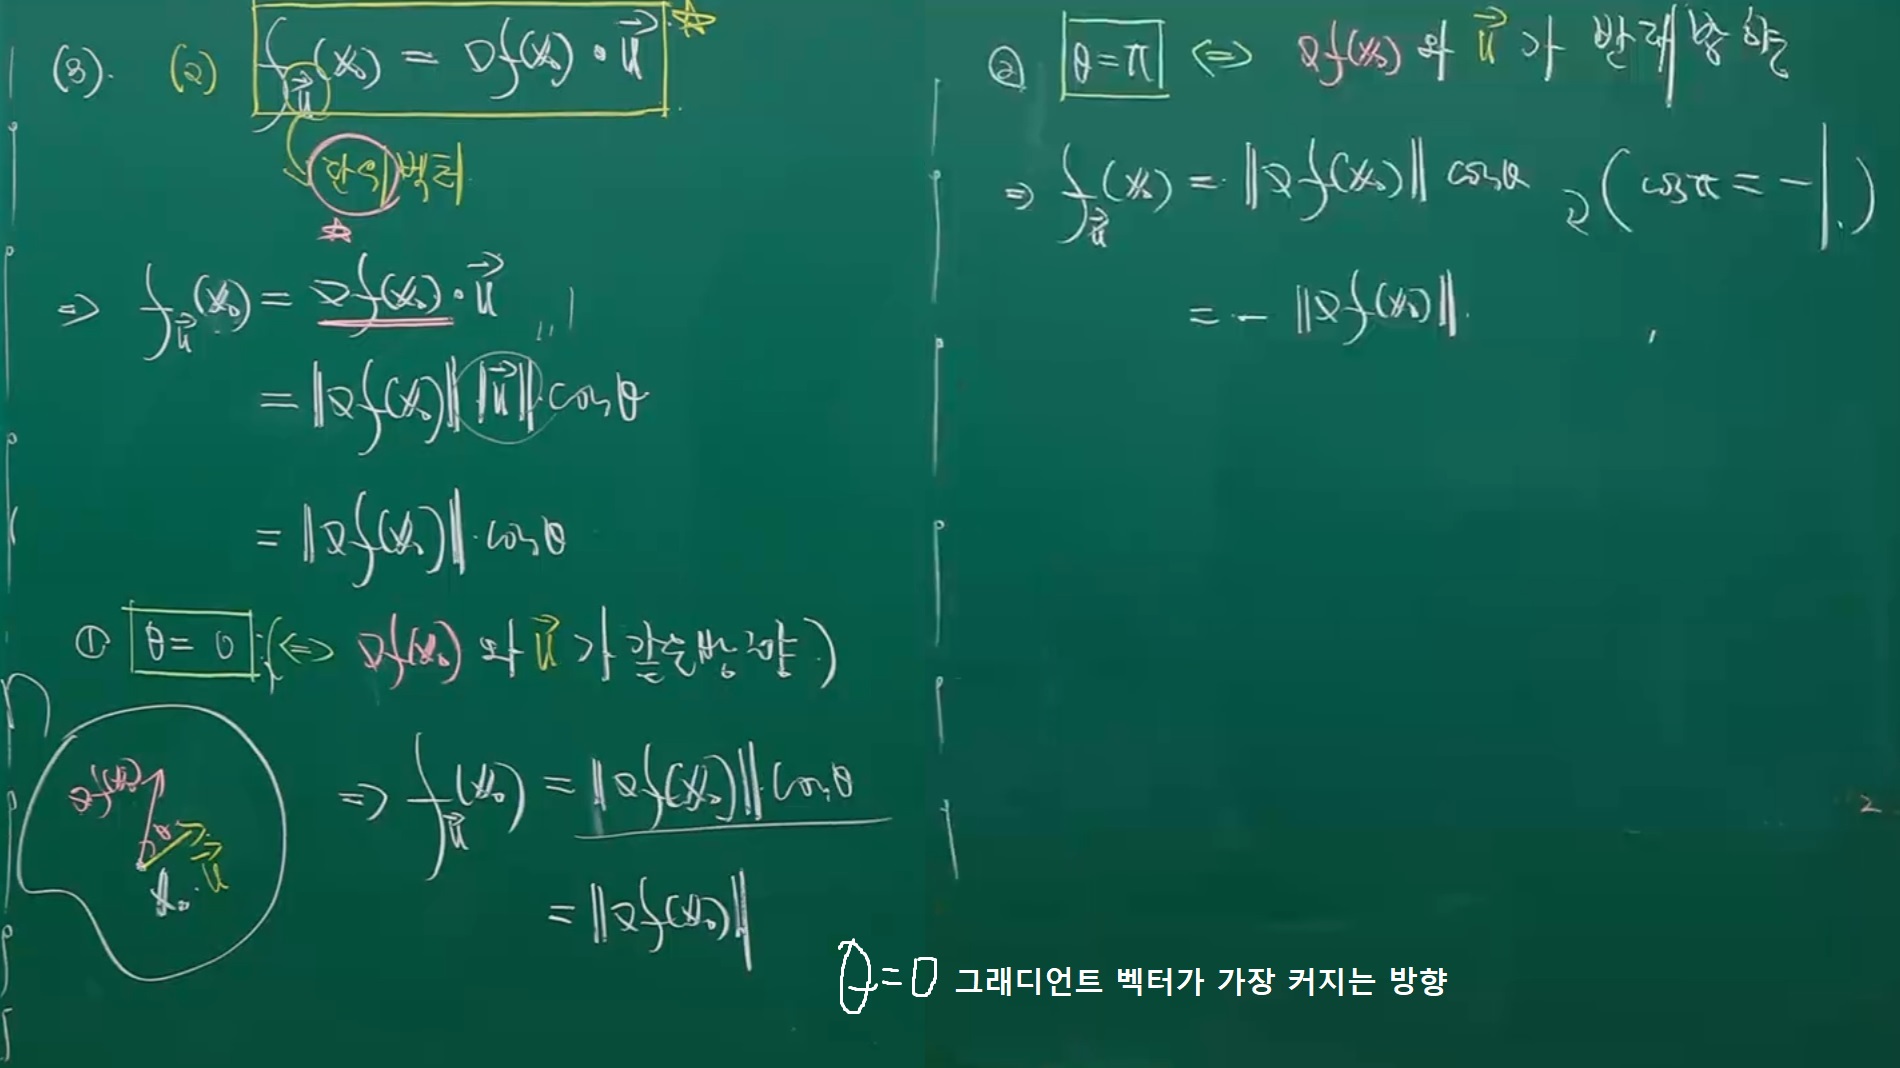 (3). (2) f_u⃗(x₀) = ∇f(x₀)·u⃗ ☆
단위벡터
☆
⇒ f_u⃗(x₀) = ∇f(x₀)·u⃗
= ‖∇f(x₀)‖ ‖u⃗‖ cosθ
= ‖∇f(x₀)‖·cosθ
① θ = 0 ; (⇔ ∇f(x₀) 와 u⃗ 가 같은방향.)
∇f(x₀)
θ
u⃗
x₀.
⇒ f_u⃗(x₀) = ‖∇f(x₀)‖ cosθ
= ‖∇f(x₀)‖
② θ = π ⇔ ∇f(x₀) 와 u⃗ 가 반대방향
⇒ f_u⃗(x₀) = ‖∇f(x₀)‖ cosθ (cosπ = -1.)
= - ‖∇f(x₀)‖.
θ=0 그래디언트 벡터가 가장 커지는 방향